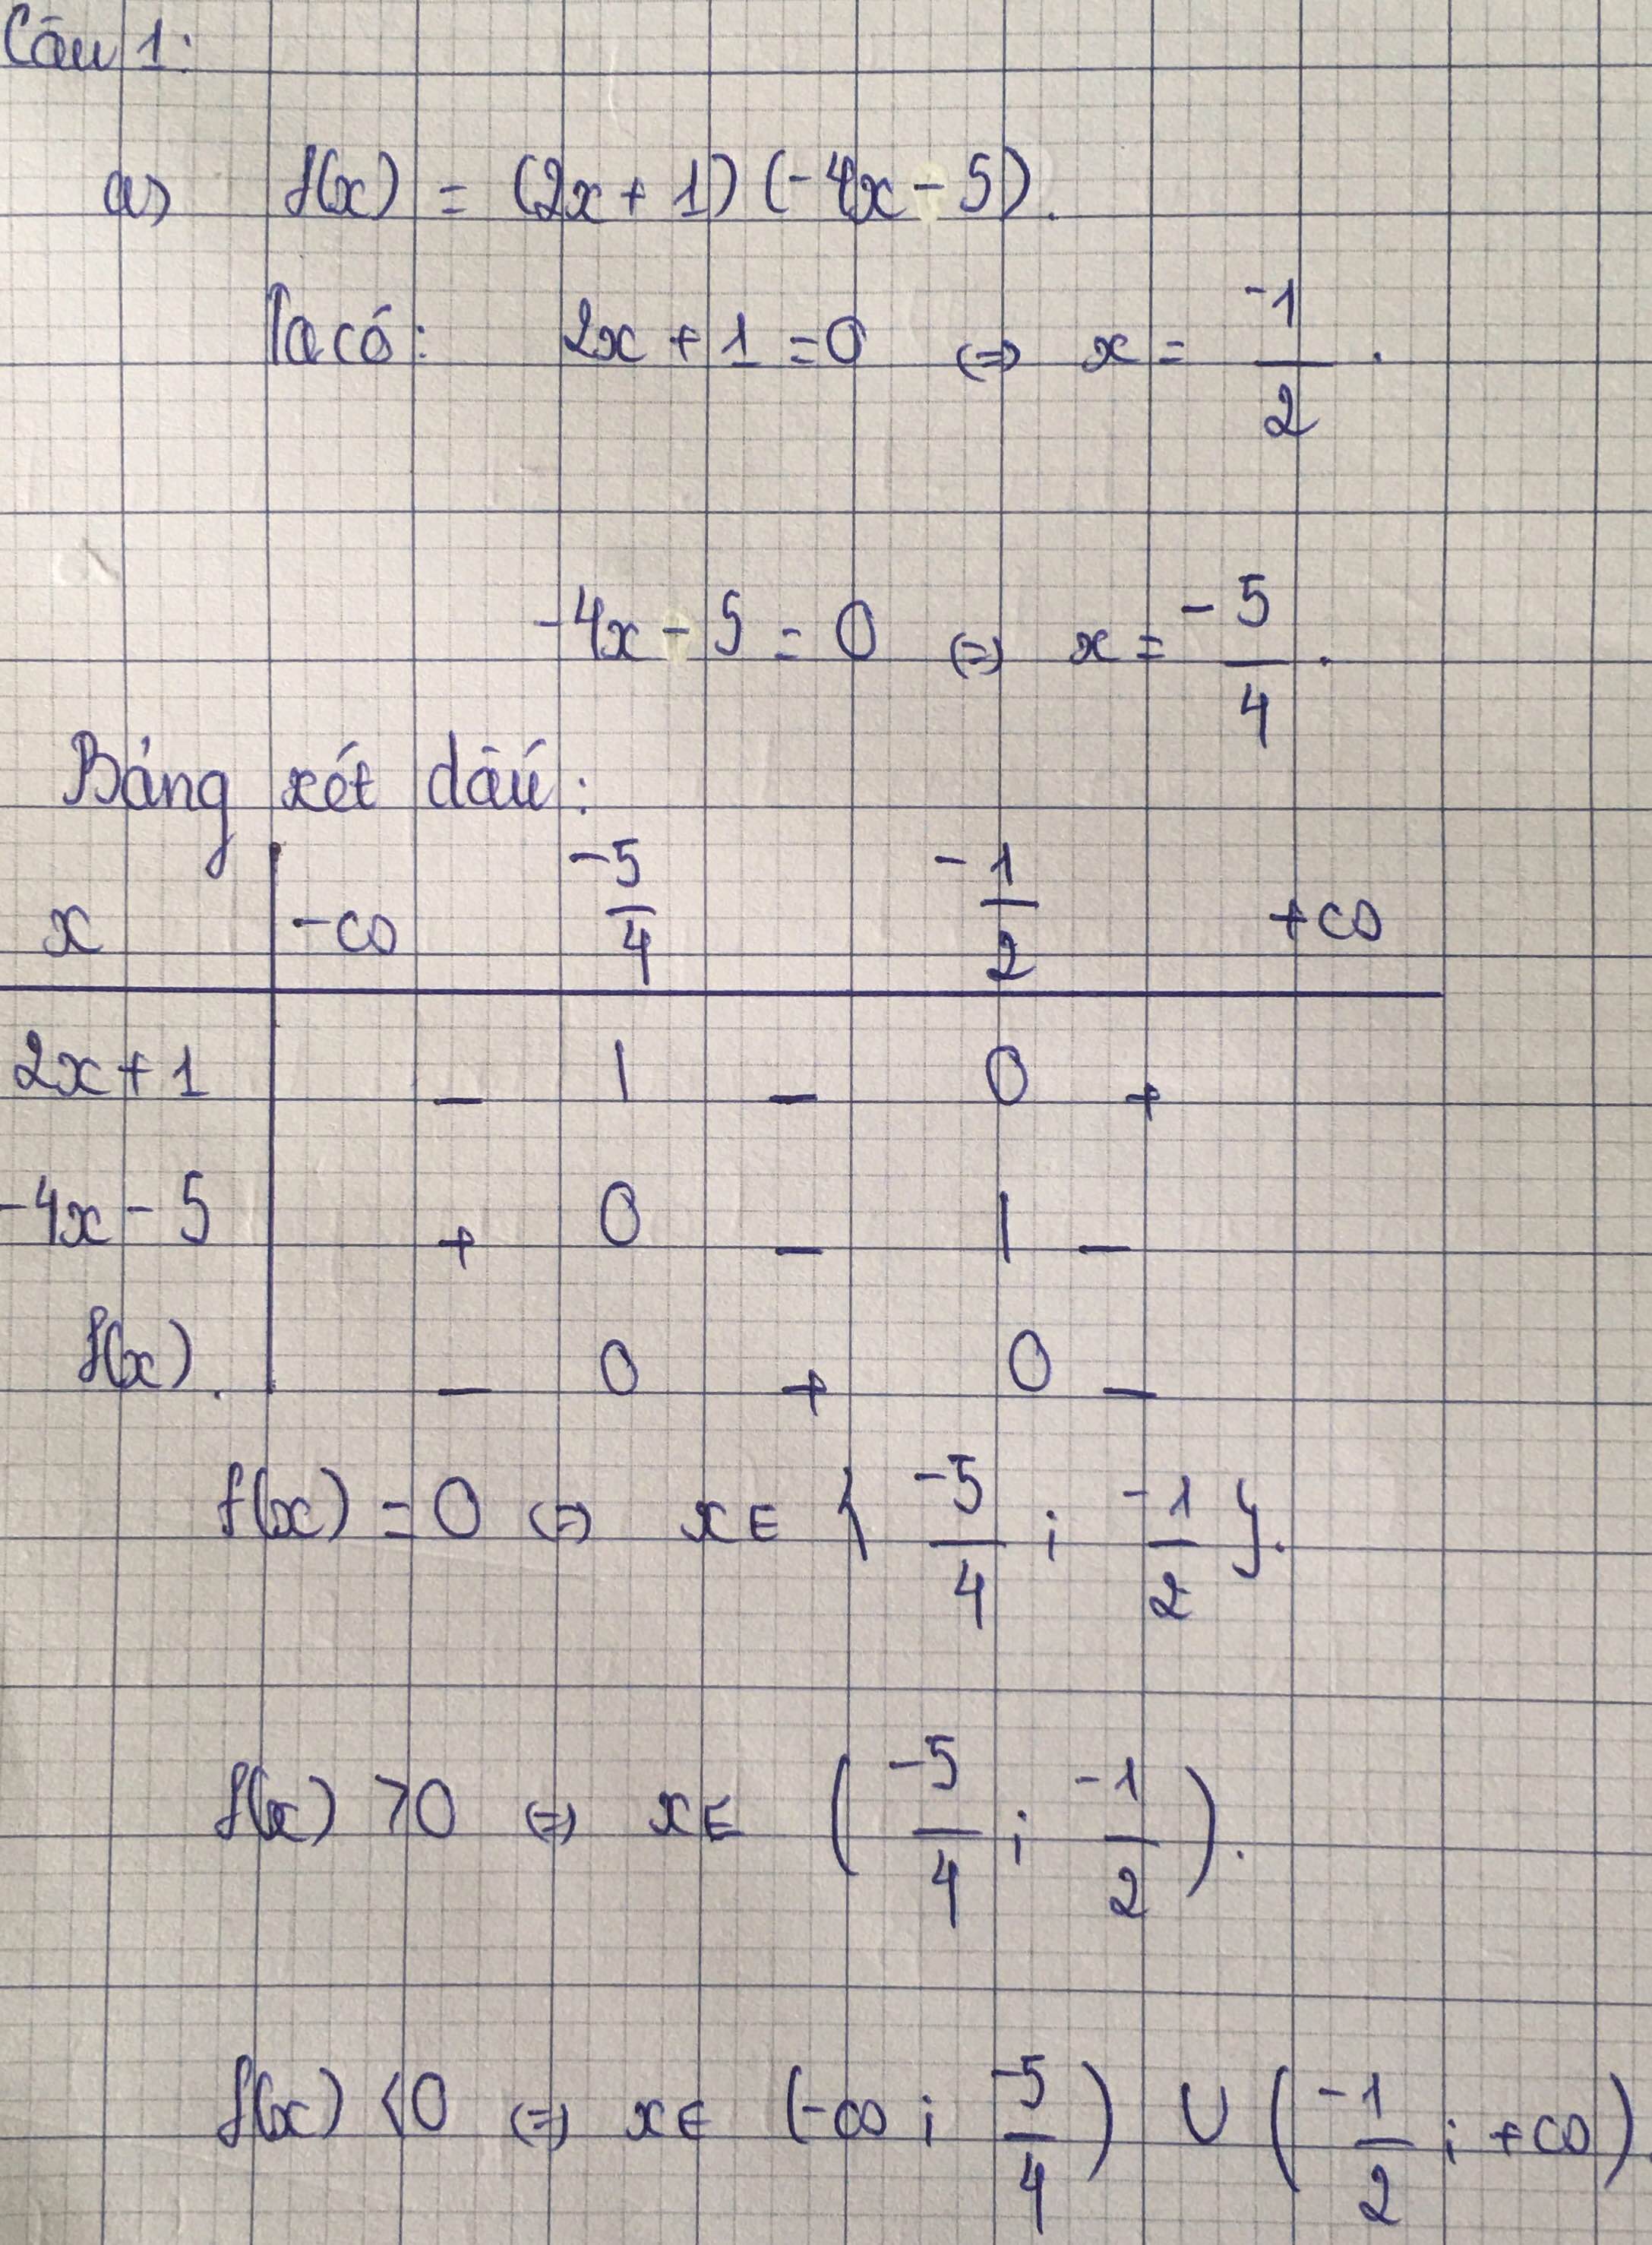 Câu 1:
a) f(x) = (2x + 1)(-4x - 5).
Ta có: 2x + 1 = 0 ⇔ x = -1/2.
-4x - 5 = 0 ⇔ x = -5/4.
Bảng xét dấu:
x | -∞ -5/4 -1/2 +∞
2x + 1 | - | - 0 +
-4x - 5 | + 0 - | -
f(x). | - 0 + 0 -
f(x) = 0 ⇔ x ∈ { -5/4 ; -1/2 }.
f(x) > 0 ⇔ x ∈ ( -5/4 ; -1/2 ).
f(x) < 0 ⇔ x ∈ (-∞ ; -5/4) ∪ ( -1/2 ; +∞).